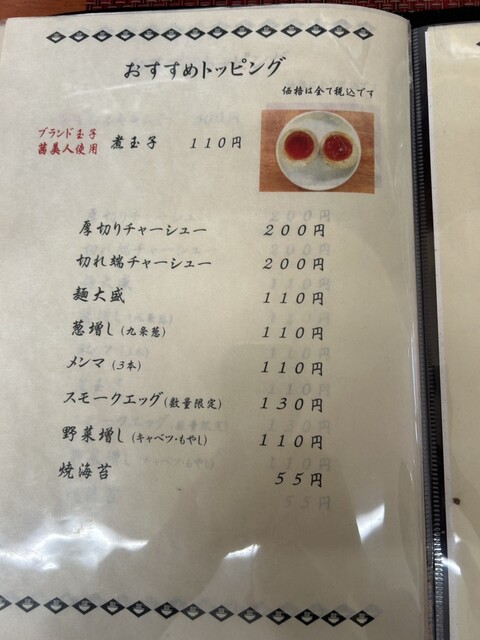 おすすめトッピング
価格は全て税込です
ブランド玉子
茜美人使用 煮玉子 110円
厚切りチャーシュー 200円
切れ端チャーシュー 200円
麺大盛 110円
葱増し(九条葱) 110円
メンマ(3本) 110円
スモークエッグ(数量限定) 130円
野菜増し(キャベツ・もやし) 110円
焼海苔 55円